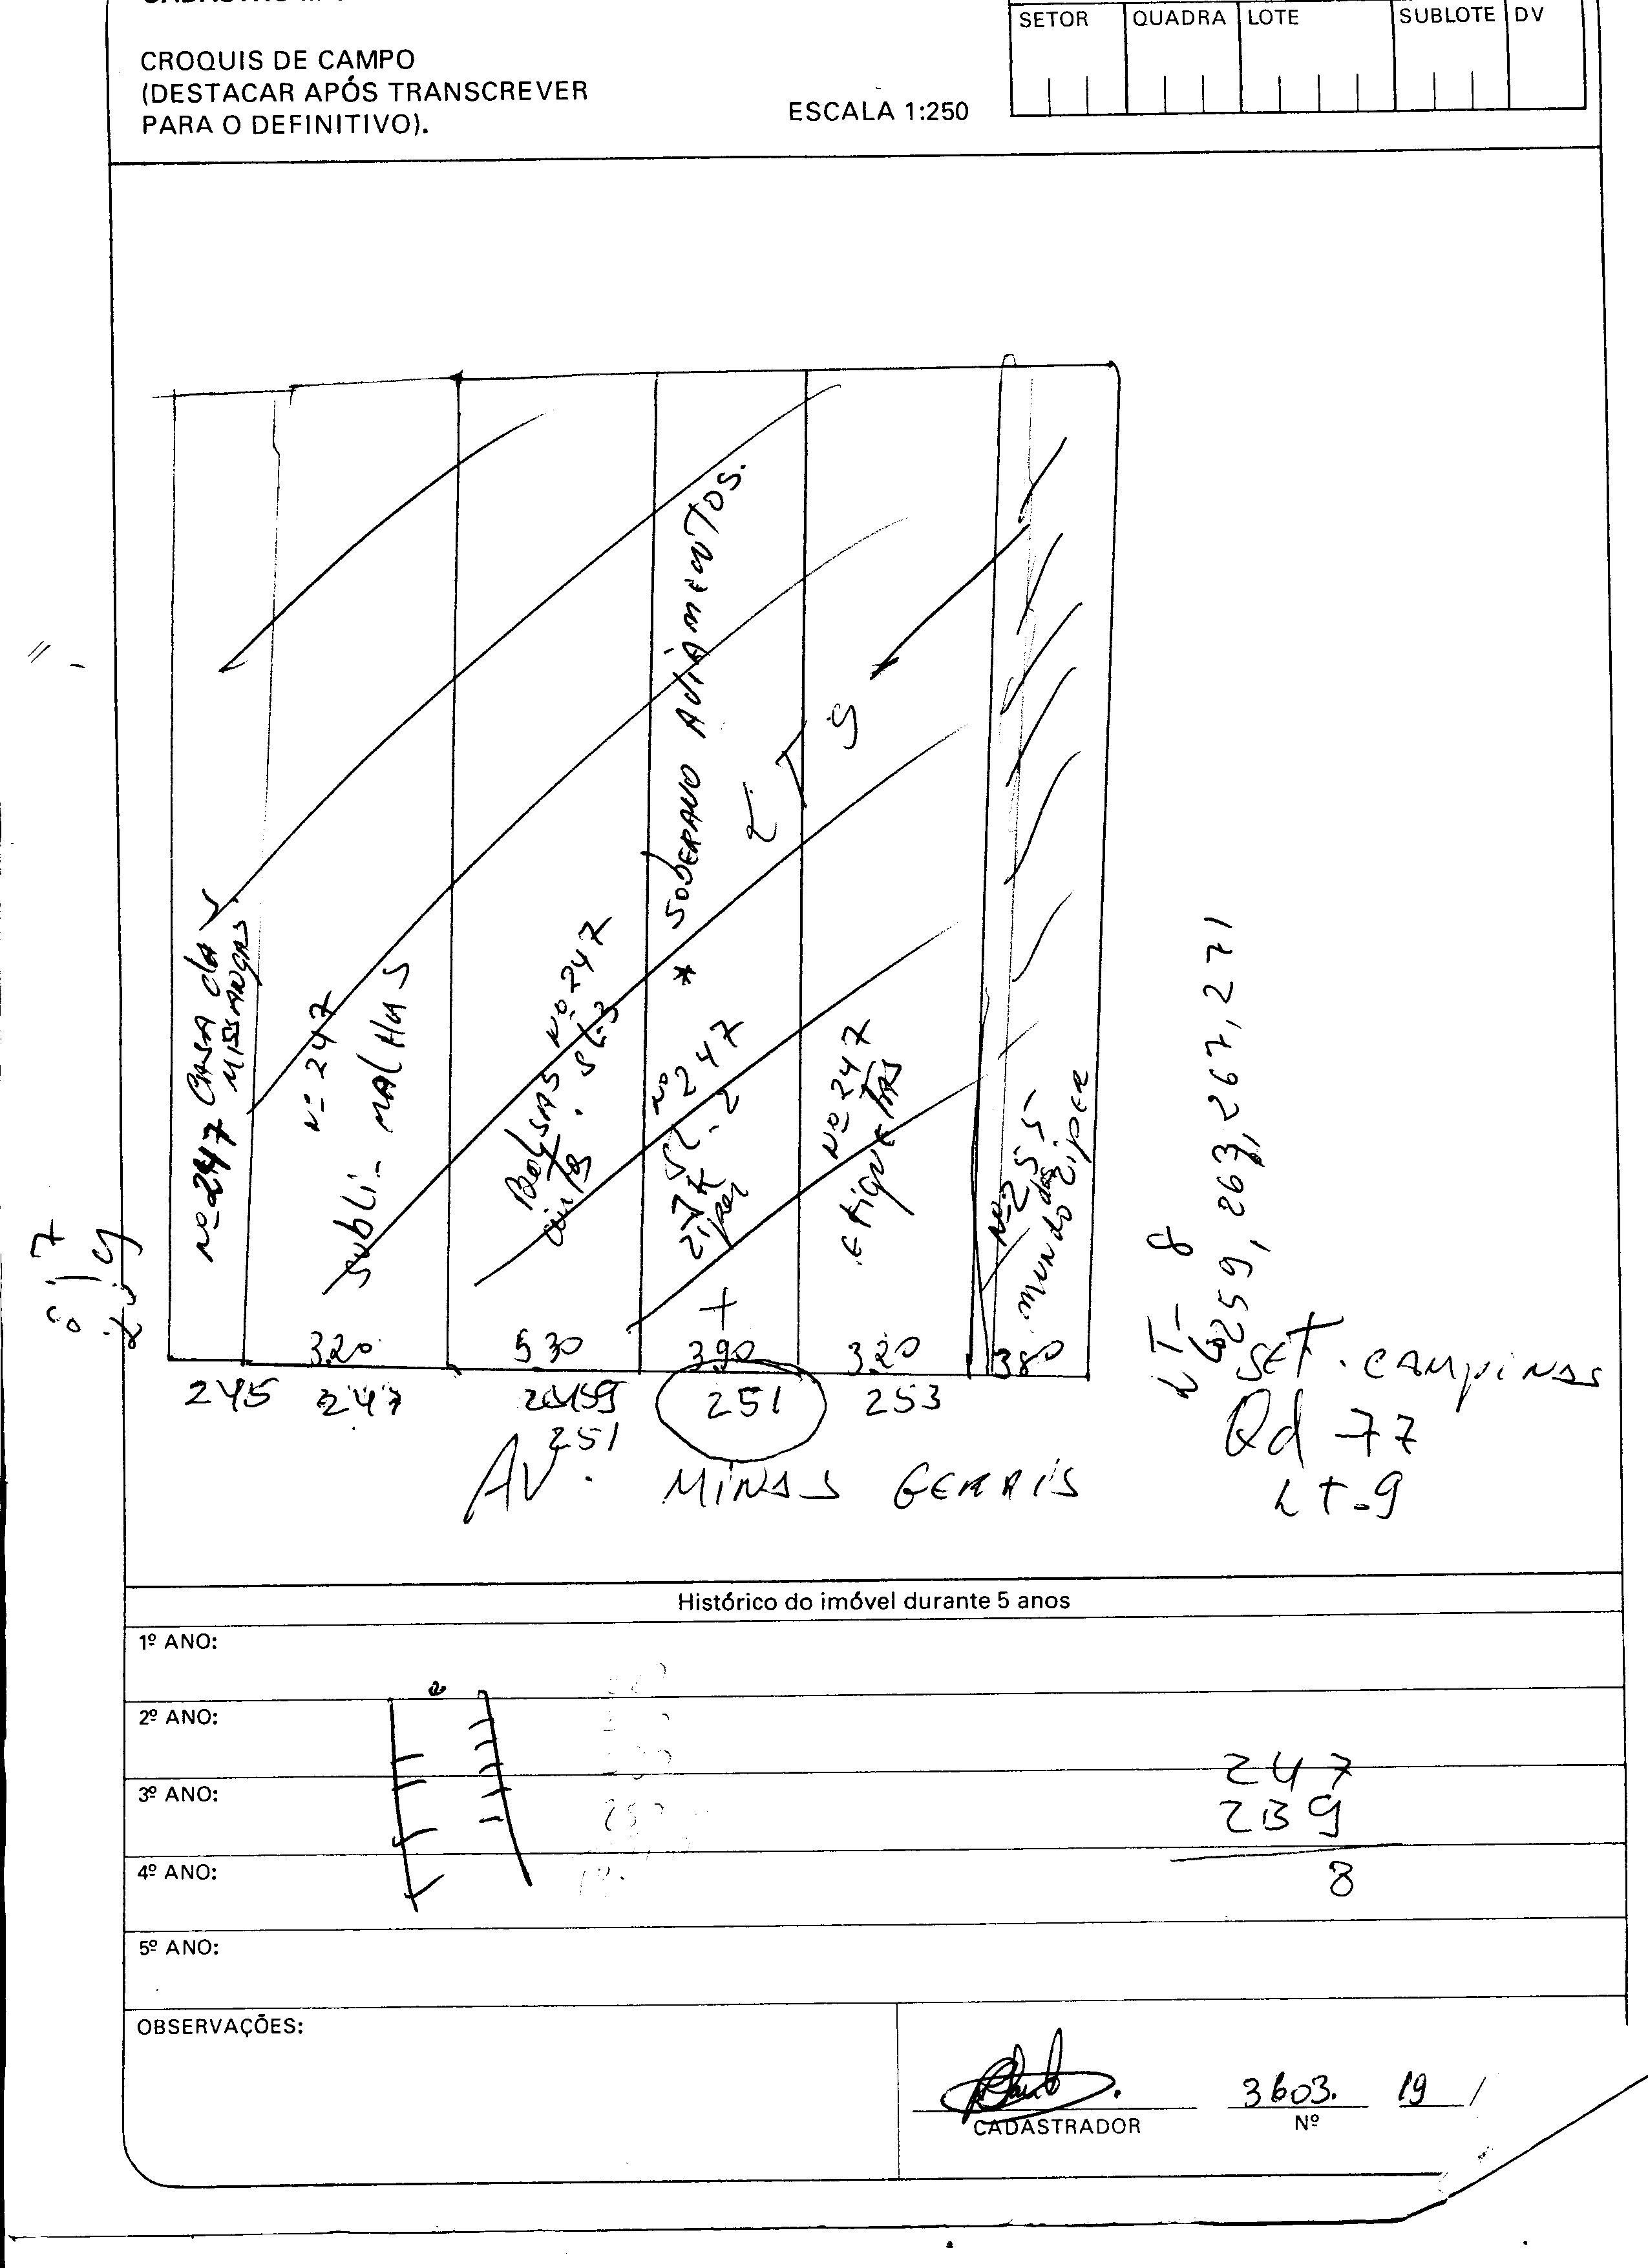 SETOR QUADRA LOTE SUBLOTE DV
CROQUIS DE CAMPO
(DESTACAR APÓS TRANSCREVER
PARA O DEFINITIVO).
ESCALA 1:250
Nº 247 CASA da
MISSANGAS
Nº 247
Subli-MALHAS
Nº 247
SL-3
Bolsas
cintos
* SOBERANO AVIAMENTOS.
Nº 247
SL-2
Ziper
LT 9
Nº 247
Etiquetas
Nº 255
mundo dos Ziper
LT-8
259, 263, 267, 271
3.20 5.30 3.90 3.20 3.80
245 247 251 253
251
AV. MINAS GERAIS
SET. CAMPINAS
Qd-77
LT-9
Histórico do imóvel durante 5 anos
1º ANO:
2º ANO:
3º ANO:
4º ANO:
5º ANO:
247
239
8
OBSERVAÇÕES:
3603. 19 /
CADASTRADOR Nº